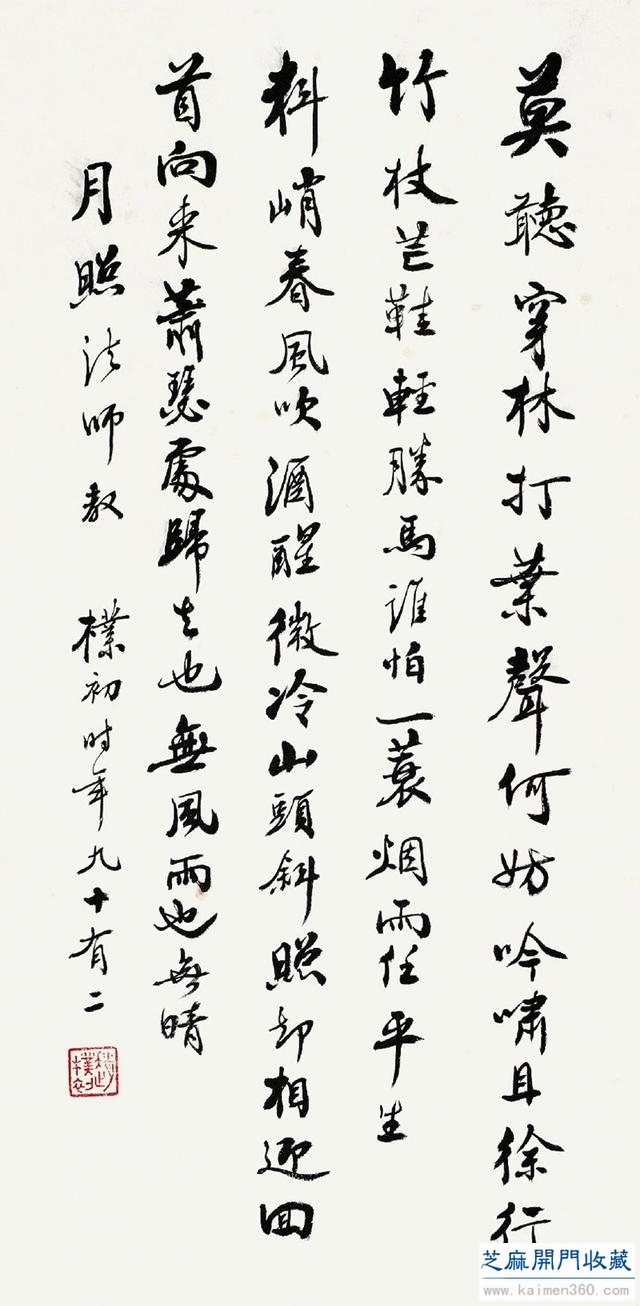 莫聽穿林打葉聲何妨吟嘯且徐行
竹杖芒鞋輕勝馬誰怕一蓑烟雨任平生
料峭春風吹酒醒微冷山頭斜照却相迎回
首向来蕭瑟處歸去也無風雨也無晴
月照法師教 樸初时年九十有二
趙樸初
芝麻開門收藏
www.kaimen360.com